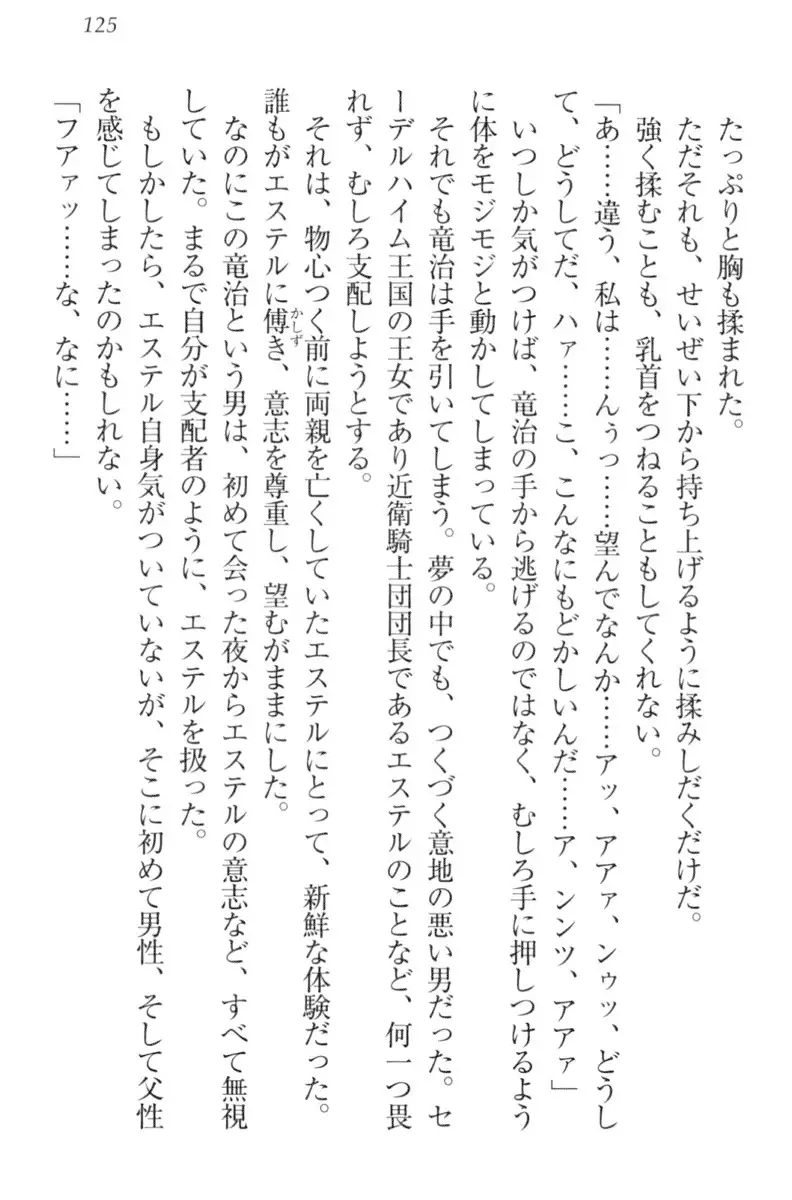 125
たっぷりと胸も揉まれた。
ただそれも、せいぜい下から持ち上げるように揉みしだくだけだ。
強く揉むことも、乳首をつねることもしてくれない。
「あ……違う、私は……んぅっ……望んでなんか……アッ、アアァ、ンゥッ、どうし
て、どうしてだ、ハァ……こ、こんなにもどかしいんだ……ア、ンンツ、アアァ」
いつしか気がつけば、竜治の手から逃げるのではなく、むしろ手に押しつけるよう
に体をモジモジと動かしてしまっている。
それでも竜治は手を引いてしまう。夢の中でも、つくづく意地の悪い男だった。セ
ーデルハイム王国の王女であり近衛騎士団団長であるエステルのことなど、何一つ畏
れず、むしろ支配しようとする。
それは、物心つく前に両親を亡くしていたエステルにとって、新鮮な体験だった。
誰もがエステルに傅き、意志を尊重し、望むがままにした。
かしず
なのにこの竜治という男は、初めて会った夜からエステルの意志など、すべて無視
していた。まるで自分が支配者のように、エステルを扱った。
もしかしたら、エステル自身気がついていないが、そこに初めて男性、そして父性
を感じてしまったのかもしれない。
「フアァッ……な、なに……」